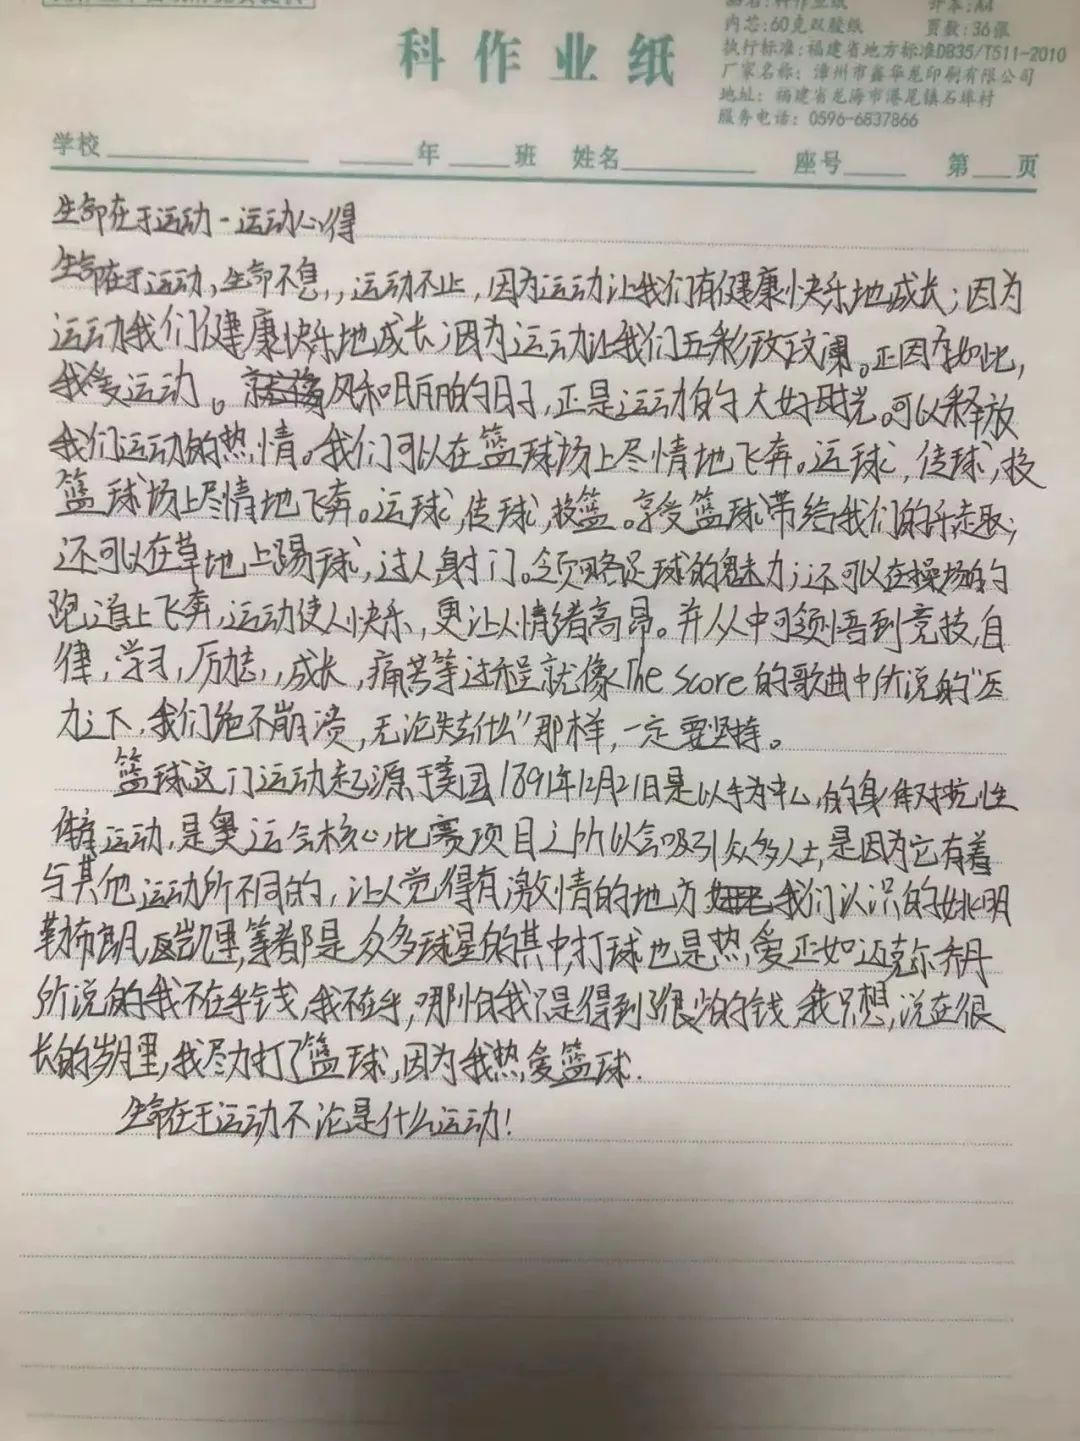 科作业纸
品名:科作业纸 开本:A4
内芯:60克双胶纸 页数:36张
执行标准:福建省地方标准DB35/T511-2010
厂家名称:漳州市鑫华龙印刷有限公司
地址:福建省龙海市港尾镇石埠村
服务电话:0596-6837866
学校 年 班 姓名 座号 第 页
生命在于运动-运动心得
生命在于运动,生命不息,,运动不止,因为运动让我们有健康快乐地成长;因为
运动我们健康快乐地成长;因为运动让我们五彩斑斓。正因为如此,
我爱运动。风和日丽的日子,正是运动的大好时光。可以释放
我们运动的热情。我们可以在篮球场上尽情地飞奔。运球,传球,投
篮球场上尽情地飞奔。运球,传球,投篮。享受篮球带给我们的乐趣;
还可以在草地上踢球,过人射门。领略足球的魅力;还可以在操场的
跑道上飞奔,运动使人快乐,更让人情绪高昂。并从中可领悟到竞技,自
律,学习,励志,,成长,痛苦等过程就像The Score的歌曲中所说的"压
力之下,我们绝不崩溃,无论失去什么"那样,一定要坚持。
篮球这门运动起源于美国1891年12月21日是以手为中心的身体对抗性
体育运动,是奥运会核心比赛项目之所以会吸引众多人士,是因为它有着
与其他运动所不同的,让人觉得有激情的地方我们认识的姚明
勒布朗,凯里,等都是众多球星的其中,打球也是热爱正如迈克尔乔丹
所说的我不在乎钱,我不在乎,哪怕我只是得到了很少的钱,我只想,说在很
长的岁月里,我尽力打了篮球,因为我热爱篮球.
生命在于运动不论是什么运动!